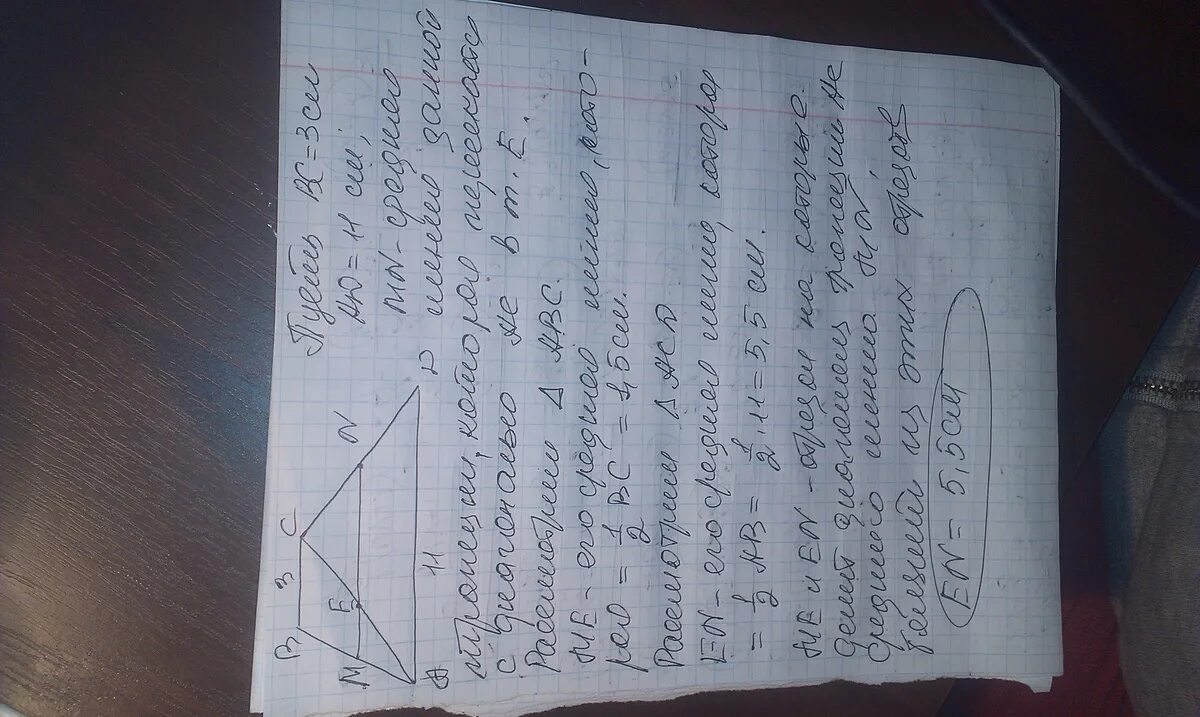 B 3 C
M E N
A 11 D
Пусть BC = 3 см
AD = 11 см,
MN - средняя
линия данной
трапеции, которая пересекается
с диагональю AC в т. E.
Рассмотрим Δ ABC.
ME - его средняя линия, кото-
рая = 1/2 BC = 1,5 см.
Рассмотрим Δ ACD
EN - его средняя линия, которая
= 1/2 AB = 1/2 · 11 = 5,5 см.
ME и EN - отрезки на которые
делит диагональ трапеции AC
среднюю линию MN
больший из этих отрезков
EN = 5,5 см